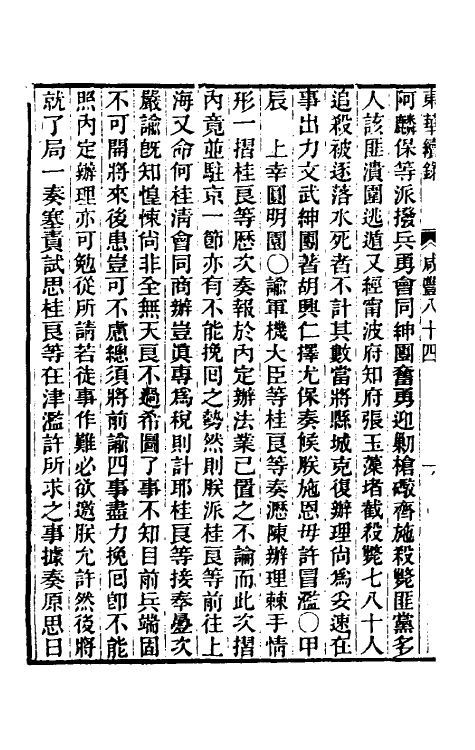 東華續錄 咸豐八十四 一
阿麟保等派撥兵勇會同紳團奮勇迎勦槍礮齊施殺斃匪黨多
人該匪潰圍逃遁又經甯波府知府張玉藻堵截殺斃七八十人
追殺被逐落水死者不計其數當將縣城克復辦理尙爲妥速在
事出力文武紳團著胡興仁擇尤保奏候朕施恩毋許冒濫〇甲
辰 上幸圓明園〇諭軍機大臣等桂良等奏瀝陳辦理棘手情
形一摺桂良等歷次奏報於內定辦法業已置之不論而此次摺
內竟並駐京一節亦有不能挽回之勢然則朕派桂良等前往上
海又命何桂淸會同商辦豈眞專爲稅則計耶桂良等接奉疊次
嚴諭旣知惶悚尙非全無天良不過希圖了事不知目前兵端固
不可開將來後患豈可不慮總須將前諭四事盡力挽回卽不能
照內定辦理亦可勉從所請若徒事作難必欲邀朕允許然後將
就了局一奏塞責試思桂良等在津濫許所求之事據奏原思日